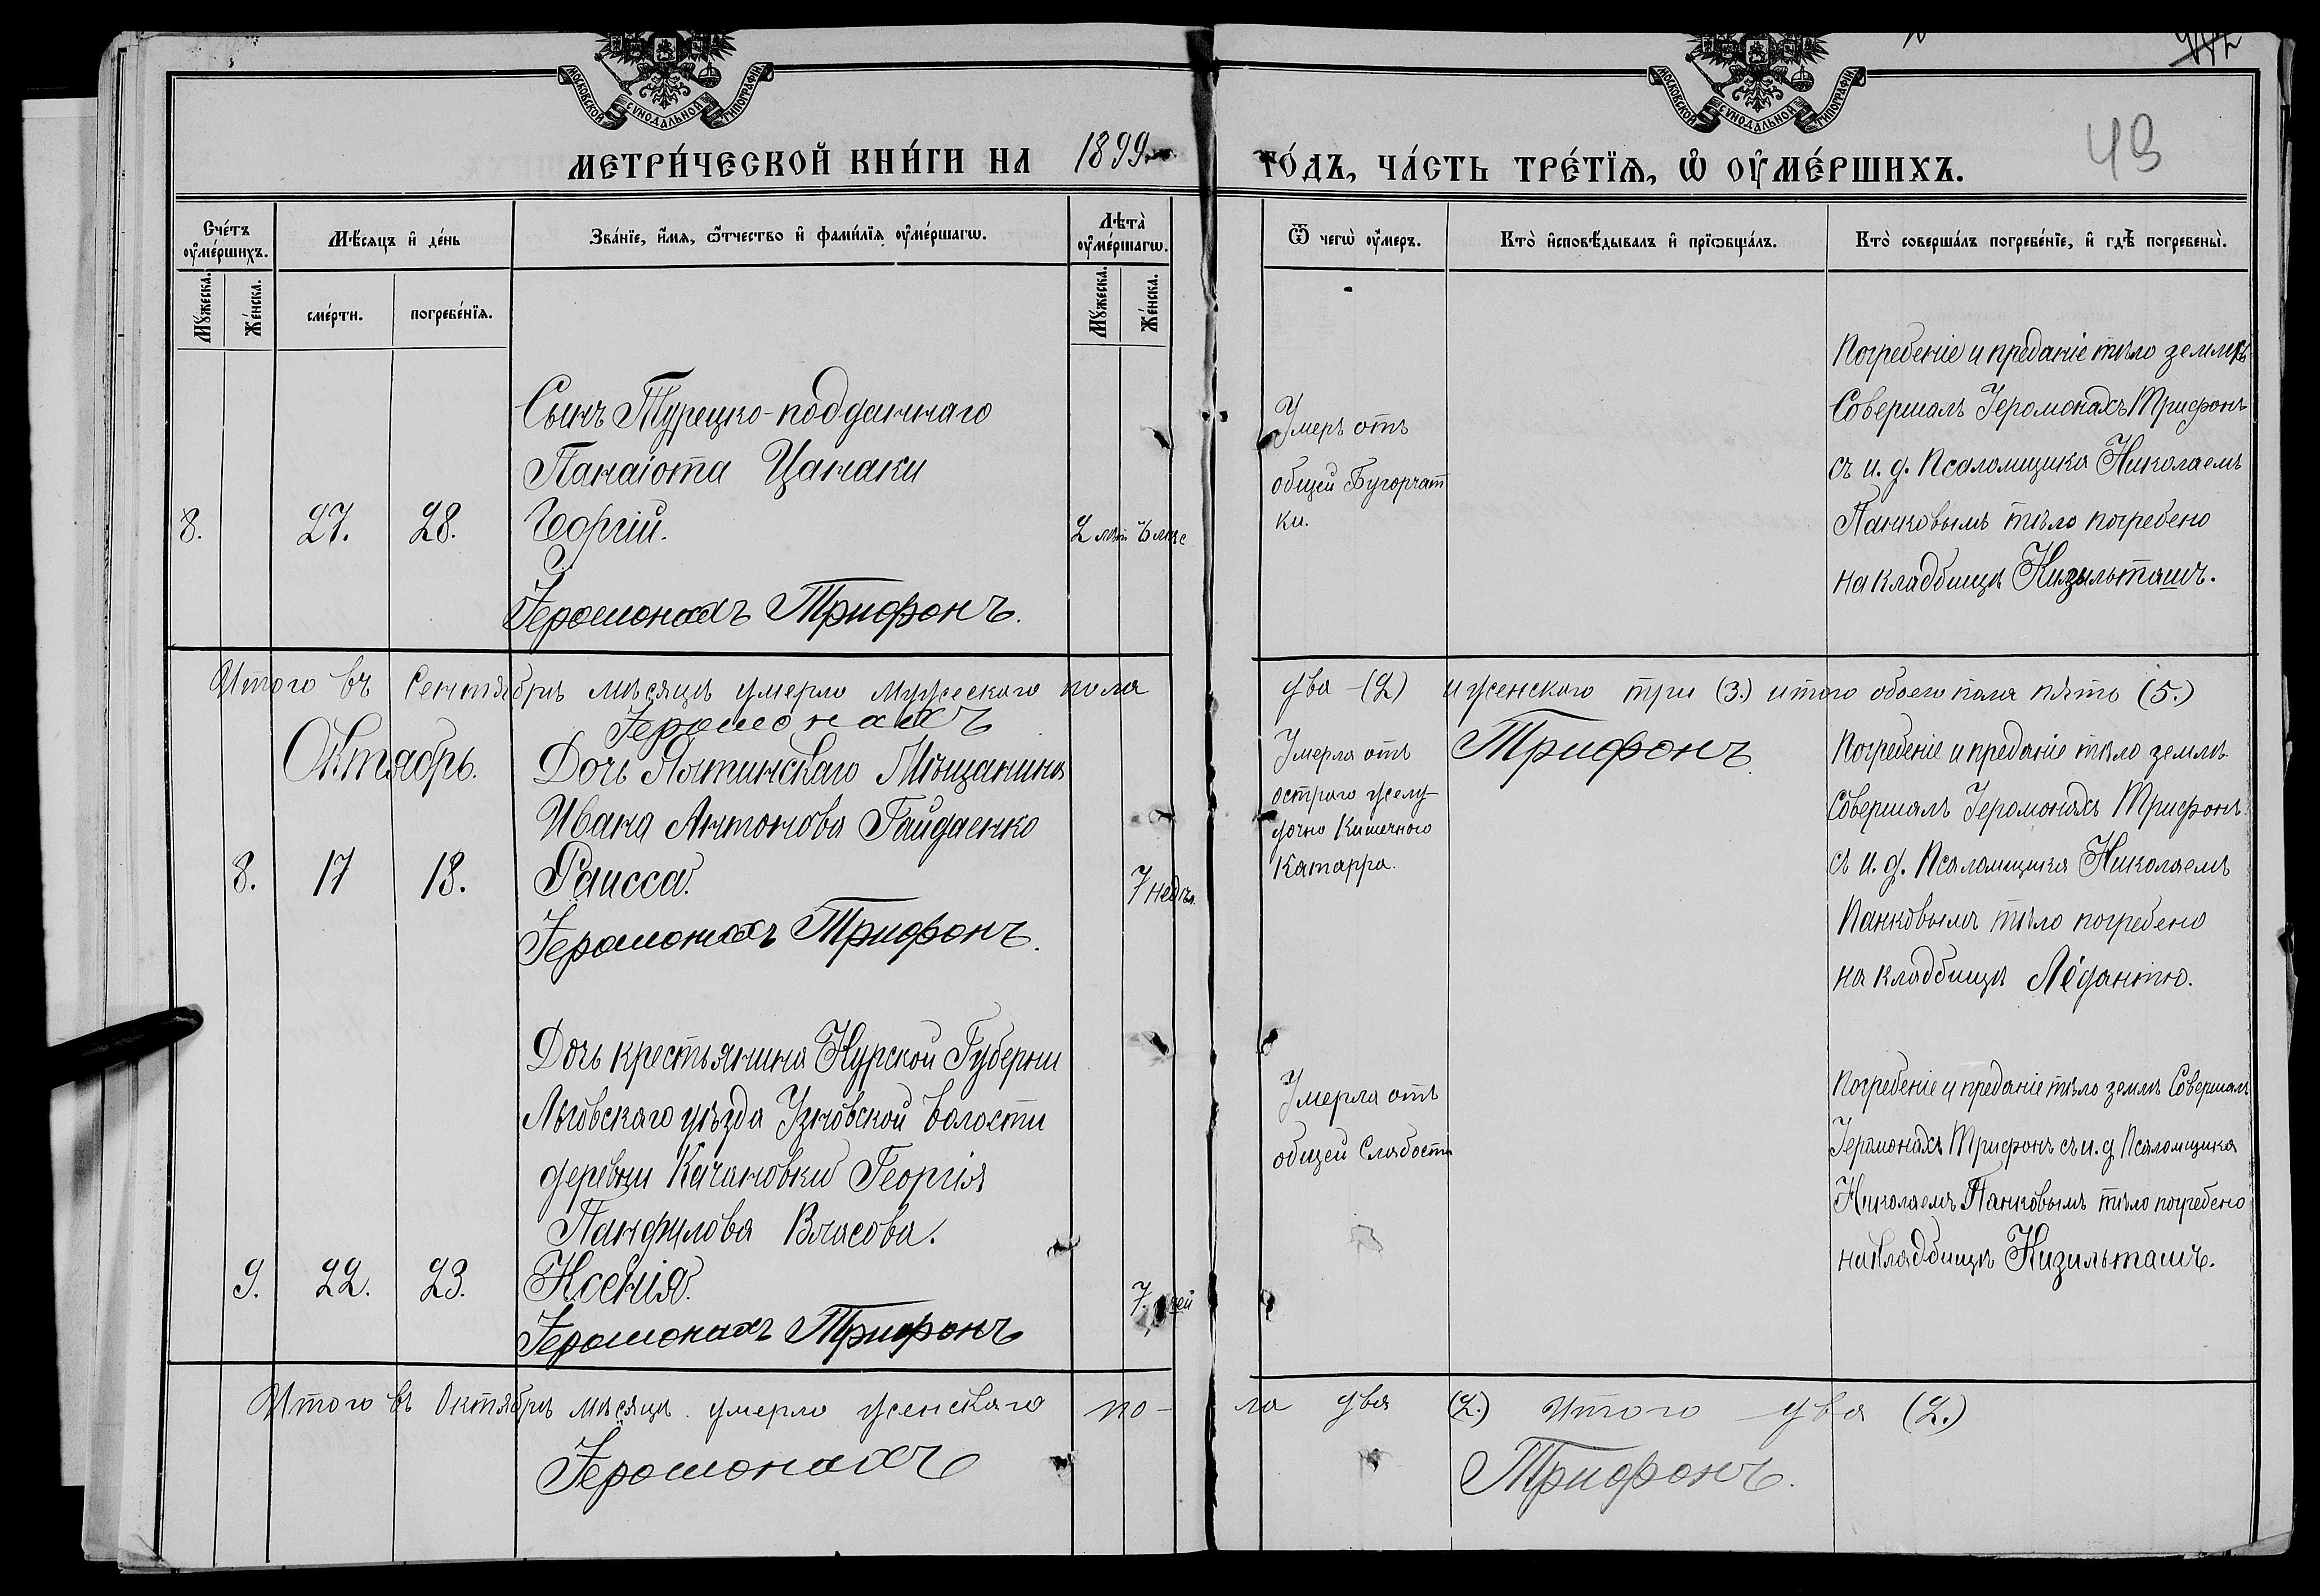 МОСКОВСКОЙ СѴНОДАЛЬНОЙ ТИПОГРАФІИ
МОСКОВСКОЙ СѴНОДАЛЬНОЙ ТИПОГРАФІИ
43
МЕТРИ́ЧЕСКОЙ КНИ́ГИ НА 1899 ГО́ДЪ, ЧА́СТЬ ТРЕ́ТЇѦ, Ѽ ОУ҆МЕ́РШИХЪ.
Сче́тъ оу҆ме́ршихъ.
Мѣ́сяцъ и҆ де́нь
Зва́нїе, и҆́мѧ, ѻ҆́тчество и҆ фамѝлїѧ оу҆ме́ршагѡ.
Лѣта̀ оу҆ме́ршагѡ.
Ѿ чегѡ̀ оу҆́меръ.
Кто̀ и҆сповѣ́дывалъ и҆ прїѡбща́лъ.
Кто̀ соверша́лъ погребе́нїе, и҆ гдѣ̀ погребены̀.
Мꙋ́жеска.
Же́нска.
сме́рти.
погребе́нїѧ.
Мꙋ́жеска.
Же́нска.
Сынъ Турецко-подданнаго
Панаіота Цанаки
8. 27. 28. Георгій. 2
Іеромонахъ Трифонъ.
Умеръ отъ
общей Бугорчат
ки.
Погребеніе и преданіе тѣло землѣ
Совершалъ Іеромонахъ Трифонъ
съ и. д. Псаломщика Николаемъ
Панковымъ тѣло погребено
на кладбищѣ Кизильташъ.
Итого въ Сентябрѣ мѣсяцѣ умерло мужескаго пола два (2) и женскаго три (3.) итого обоего пола пять (5.)
Іеромонахъ Трифонъ.
Октябрь.
Дочь Ялтинскаго Мѣщанина
Ивана Антонова Гайдаенко
8. 17 18. Раисса. 7 недѣл.
Іеромонахъ Трифонъ.
Умерла отъ
остраго желу
дочно Кишечного
Катарра.
Погребеніе и преданіе тѣло землѣ
Совершалъ Іеромонахъ Трифонъ
съ и. д. Псаломщика Николаемъ
Панковымъ тѣло погребено
на кладбищѣ
Дочь крестьянина Курской Губерніи
Льговскаго уѣзда Узковской волости
деревни Качановки Георгія
Панфилова Власова.
9. 22. 23. Ксенія. 7
Іеромонахъ Трифонъ
Умерла отъ
общей Слабости
Погребеніе и преданіе тѣло землѣ Совершалъ
Іеромонахъ Трифонъ съ и. д Псаломщика
Николаемъ Панковымъ тѣло погребено
на кладбищѣ Кизильташъ.
Итого въ Октябрѣ мѣсяцѣ умерло женскаго по-ла два (2.) Итого два (2.)
Іеромонахъ Трифонъ.